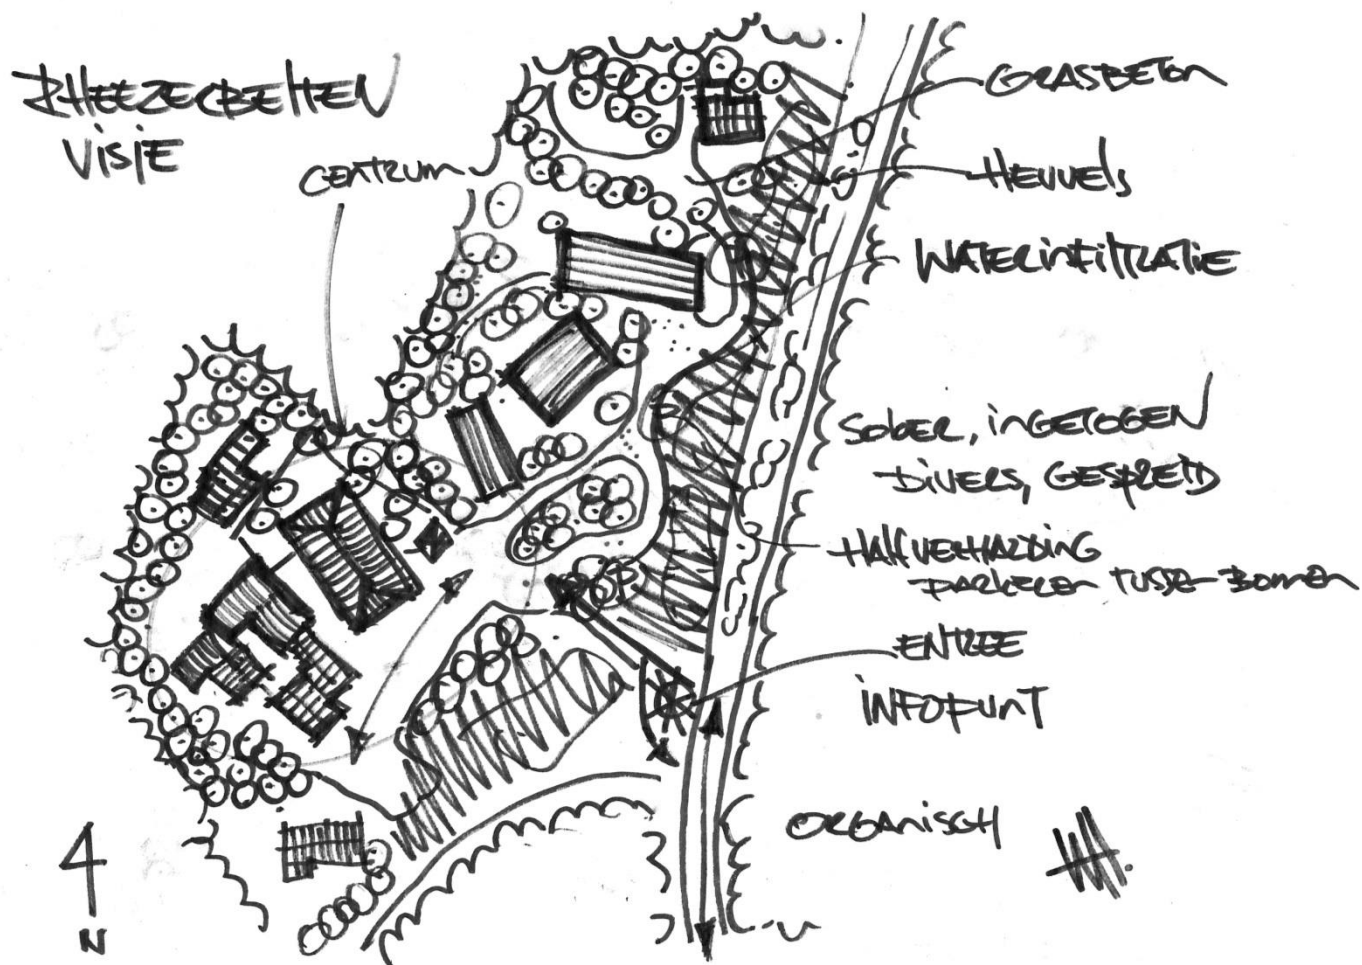 RHEEZERBELTEN
VISIE
CENTRUM
GRASBETON
HEUVELS
WATERINFILTRATIE
SOBER, INGETOGEN
DIVERS, GESPREID
HALFVERHARDING
PARKEREN TUSSEN BOMEN
ENTREE
INFOPUNT
ORGANISCH
P
P
N